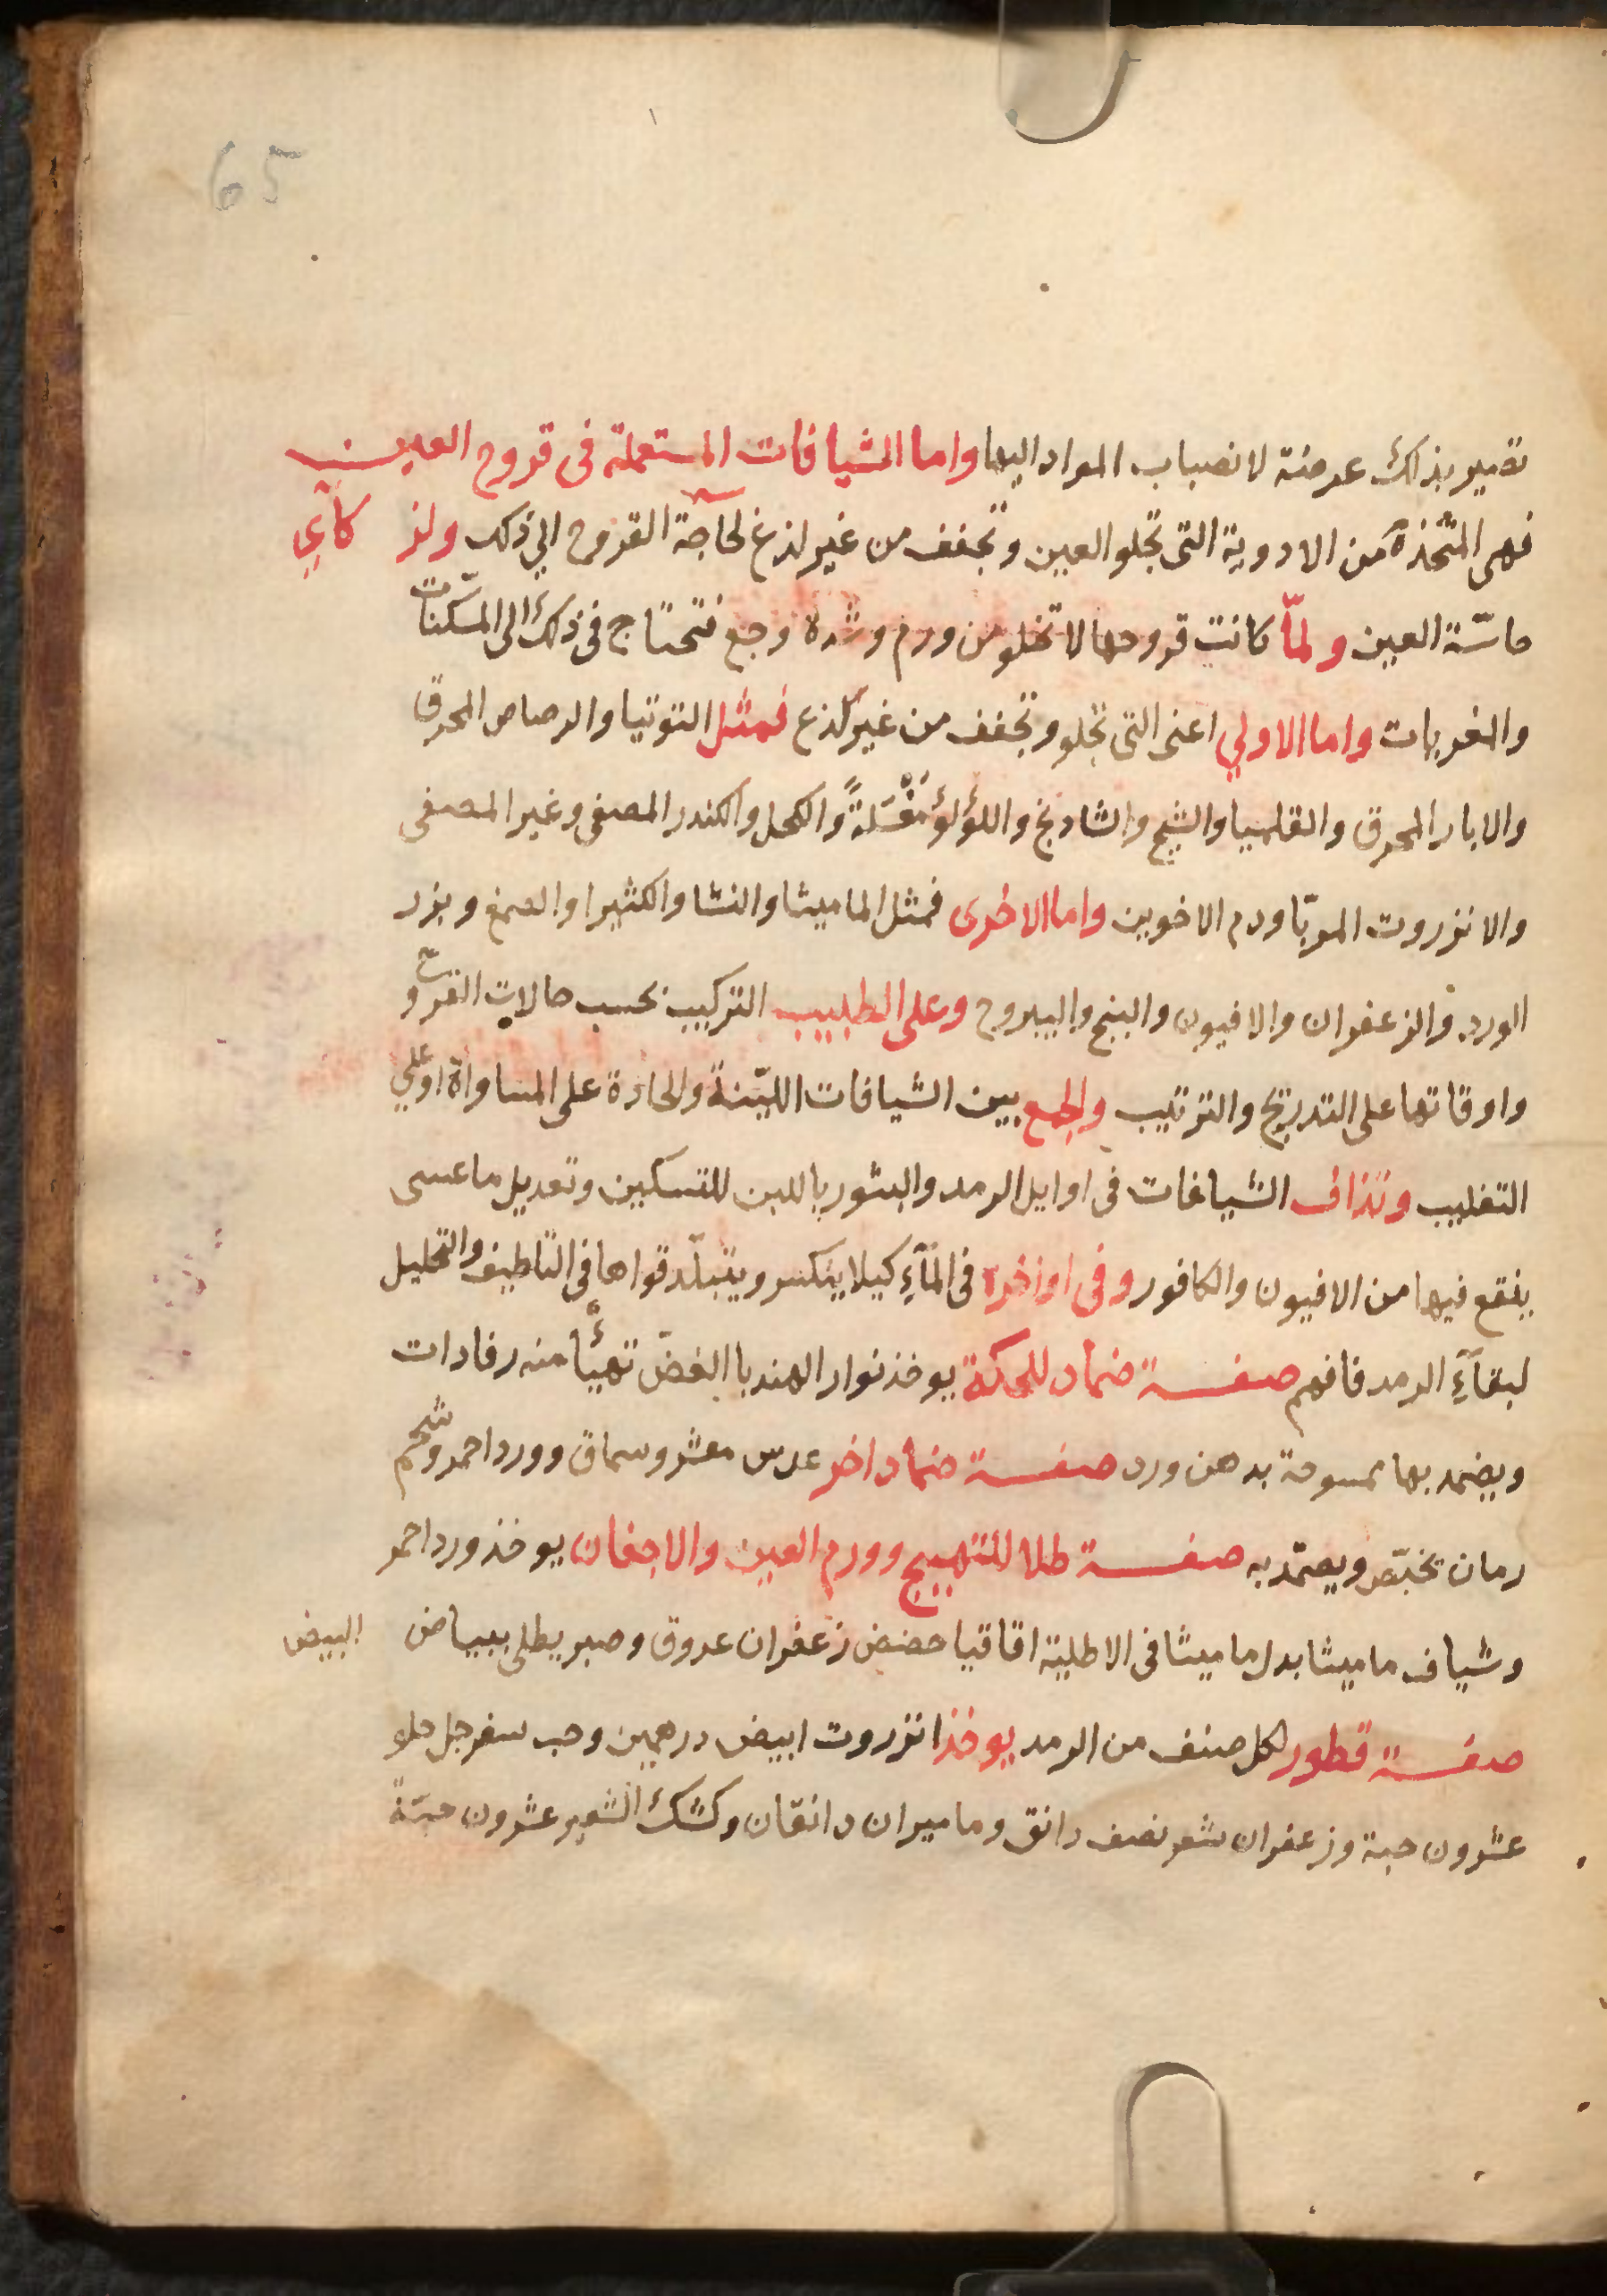 65
تصير بذلك عرضة لانصباب المواد اليها واما الشيافات المستعملة فى قروح العين
فهى المتخذة من الادوية التى تجلو العين وتجفف من غير لذع لحاجة القروح الي ذلك
حاسّة العين ولمّا كانت قروحها لا تخلو من ورم وشدة وجع فتحتاج فى ذلك الى المسكّنات
والمغريات واما الاولي اعنى التى تجلو وتجفف من غير لذع فمثل التوتيا والرصاص المحرق
والابار المحرق والقلميا والشيح والشادنج واللؤلؤ مغسّلةً والكحل والكندر المصفى وغير المصفى
والانزروت المربّا ودم الاخوين واما الاخرى فمثل الماميثا والنشا والكثيرا والصمغ وبزر
الورد والزعفران والافيون والبنج واليبروح وعلى الطبيب التركيب بحسب حالات القرح و
واوقاتها على التدريج والترتيب والجمع بين الشيافات الليّنة والحادة على المساواة او على
التغليب وتذاف الشيافات فى اوايل الرمد والبثور باللبن للتسكين وتعديل ما عسى
ينقع فيها من الافيون والكافور وفى اواخره فى المآءِ كيلا ينكسر ويتبلّد قواها فى التلطيف والتحليل
لبقآءِ الرمد فافهم صفة ضماد للحكة يوخذ نوار الهندبا الغضّ تهيّأ منه رفادات
ويضمد بها ممسوحة بدهن ورد صفة ضماد اخر عدس مقشر وسماق وورد احمر وشحم
رمان يخبّص ويضمّد به صفة طلا للتهييج وورم العين والاجفان يوخذ ورد احمر
وشياف ماميثا بدل ماميثا فى الاطلية اقاقيا حضض زعفران عروق وصبر يطلى ببياض البيض
صفة قطور لكل صنف من الرمد يوخذ انزروت ابيض درهمين وحب سفرجل حلو
عشرون حبة وزعفران شعر نصف دانق وماميران دانقان وكشك الشعير عشرون حبّة